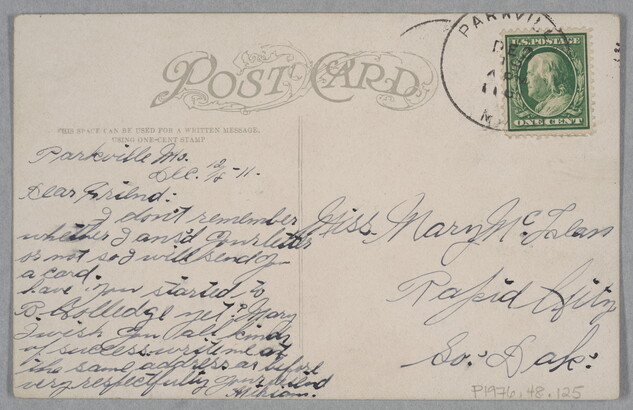 POST CARD
THIS SPACE CAN BE USED FOR A WRITTEN MESSAGE.
USING ONE-CENT STAMP
PARKVIL
M
U.S. POSTAGE
ONE CENT
Parkville Mo.
Dec. 12/5-11.
Dear Friend:
I don't remember
whether I ans'd your letter
or not so I will send you
a card.
have you started to
B. Colledge yet? Mary
I wish you all kinds
of success. write me at
the same address as before
very respectfully your friend
Miss. Mary Mc
Rapid City
So. Dak.
P1976.48.125